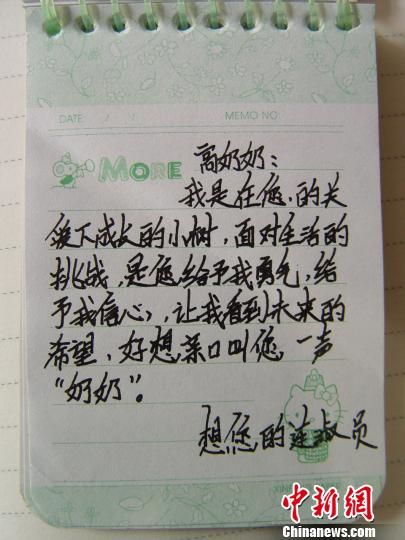 DATE: / /
MEMO NO:
MORE
高奶奶:
我是在您的关
爱下成长的小树,面对生活的
挑战,是您给予我勇气,给
予我信心,让我看到未来的
希望,好想亲口叫您一声
“奶奶”。
想您的连淑员
中新网
Chinanews.com